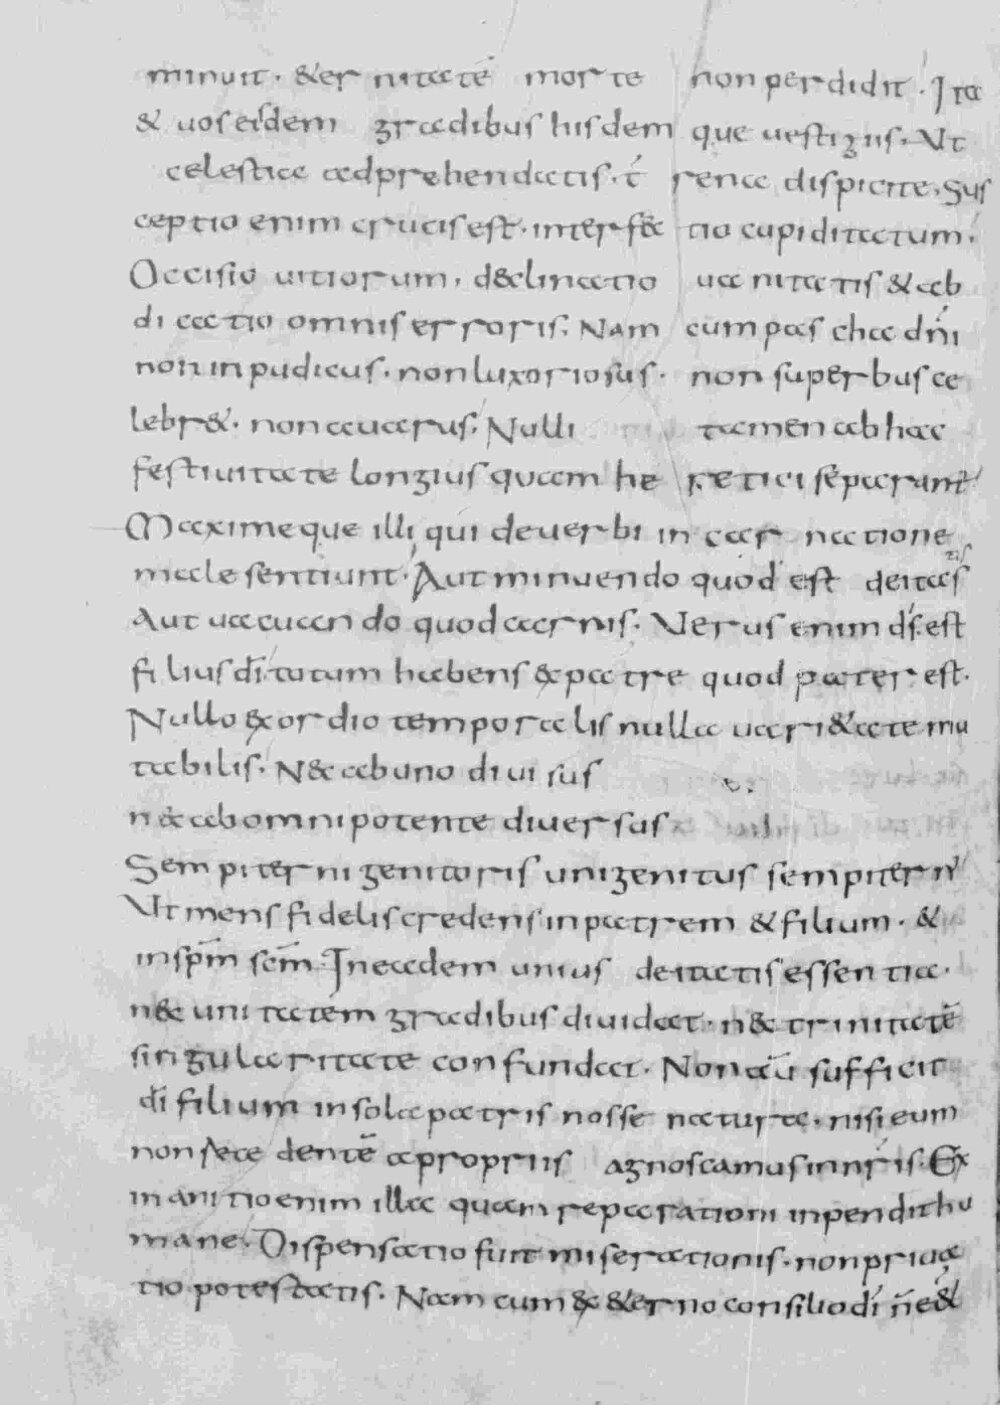 minuit · &ernitate morte non perdidit · Ita
& vos eisdem gradibus hisdem que vestigiis · Ut
celestia adprehendatis · t́ rena dispicite · Sus
ceptio enim crucis est · interfec tio cupiditatum ·
Occisio vitiorum · declinatio va nitatis & ab
dicatio omnis erroris · Nam cum pascha dn̄i
non inpudicus · non luxoriosus · non superbus ce
lebr& · non avarus · Nulli tamen ab hac
festivitate longius quam he retici separant̄
Maxime que illi qui de verbi incar natione
male sentiunt · Aut minuendo quod est deitatis
Aut vacuan do quod carnis · Verus enim ds̄ est
filius dī totum habens ex patre quod pater est ·
Nullo exordio temporalis nulla vari&ate mu
tabilis · Nec ab uno divisus
nec ab omnipotente diversus
Sempiterni genitoris unigenitus sempitern'
Ut mens fidelis credens in patrem & filium · &
in spm̄ scm̄ · In eadem unius deitatis essentia ·
nec unitatem gradibus dividat · nec trinitatē
singularitate confundat · Non aū sufficit
dī filium in sola patris nosse natura · nisi eum
non rece dentē a propriis agnoscamus in nr̄is · Ex
inanitio enim illa quam reparationi inpendit hu
mane · Dispensatio fuit miserationis · non priva
tio potestatis · Nam cum ex &erno consilio dī n̄ e&